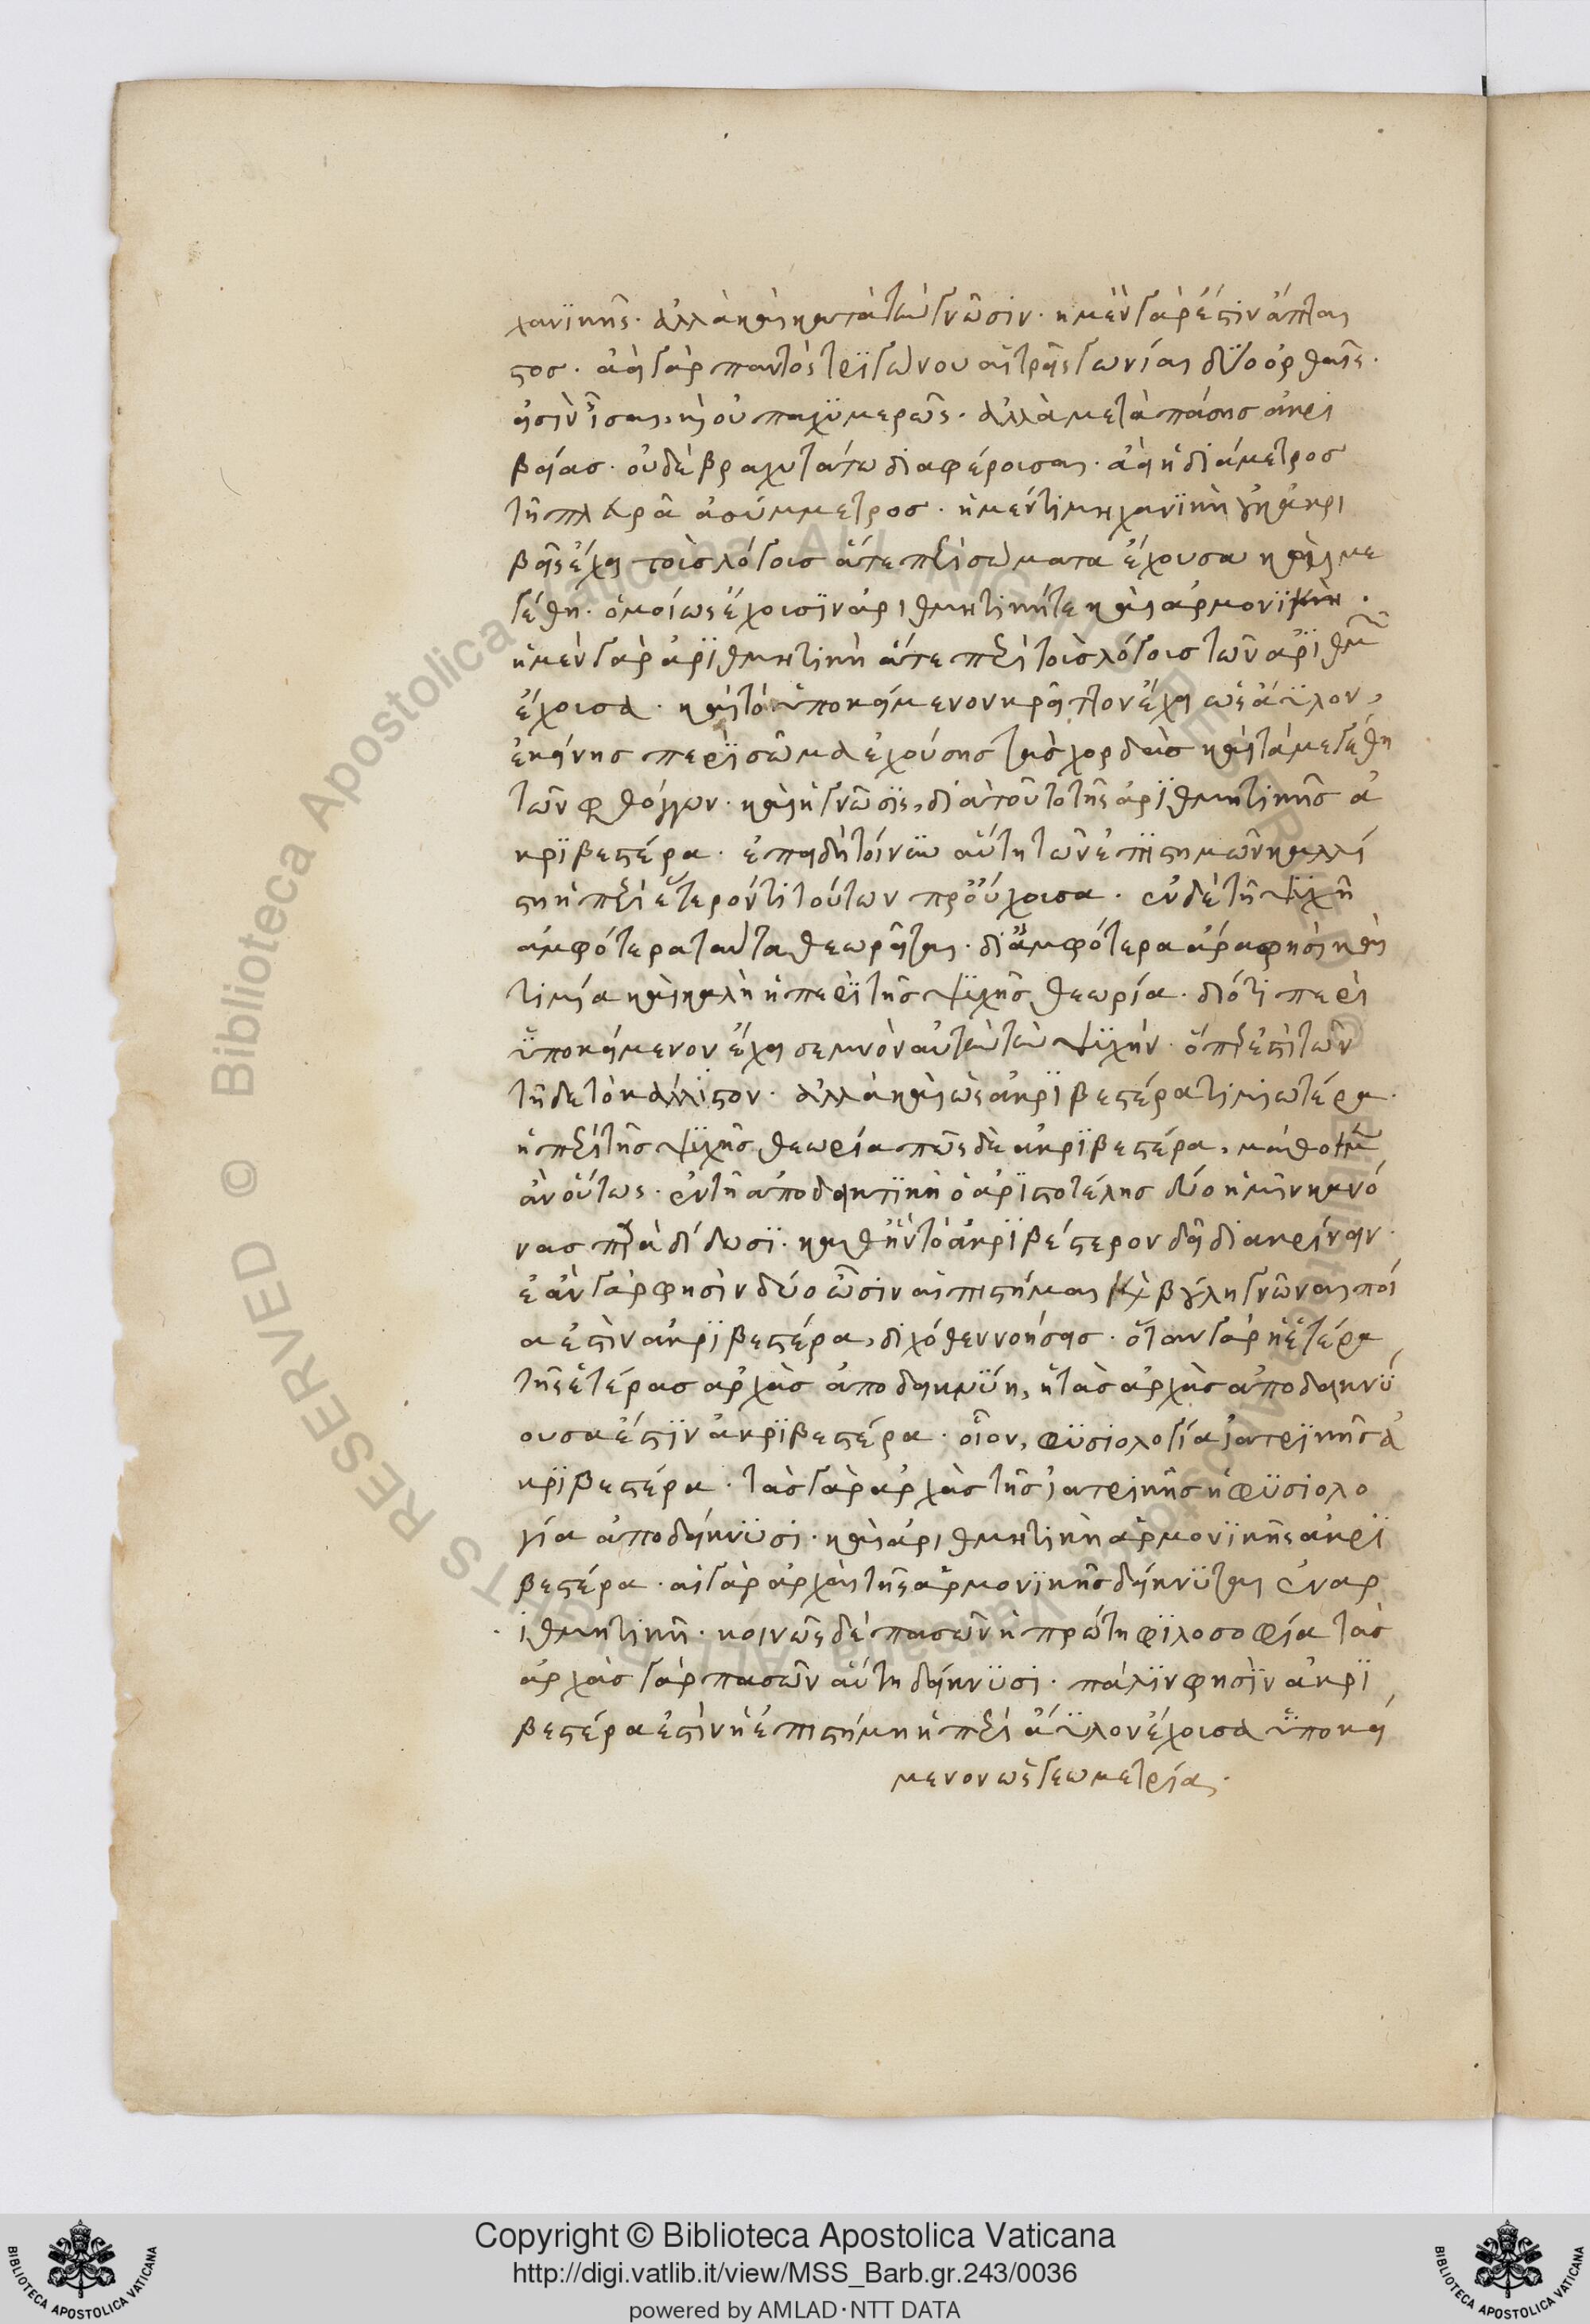 χανϊκῆς. ἀλλὰ καὶ κατὰ τὴν γνῶσιν. ἡ μὲν γάρ ἐστιν ἄπται
στος. ἀεὶ γὰρ παντὸς τριγώνου αἱ τρεῖς γωνίαι δύο ὀρθαῖς
εἰσὶν ἴσαι, καὶ οὐ παχυμερῶς. ἀλλὰ μετὰ πάσης ἀκρι
βείας. οὐδὲ βραχυτάτω διαφέρουσαι. ἀεὶ ἡ διάμετρος
τῆ πλευρᾶ ἀσύμμετρος. ἡ μέντι μηχανϊκὴ οὐκ ἀκρι
βεῖς ἔχει τοὺς λόγους ἅτε περὶ σώματα ἔχουσα καὶ με
γέθη. ὁμοίως ἔχουσϊν ἀριθμητικήτε καὶ ἁρμονϊκὴ.
ἡ μὲν γὰρ ἀριθμητικὴ ἅτε περὶ τοὺς λόγους τῶν ἀριθμῶν
ἔχουσα. καὶ τὸ ὑποκείμενον κρεῖττον ἔχει ὡς ἄϋλον,
ἐκείνης περὶ σῶμα ἐχούσης τὰς χορδὰς καὶ τὰ μεγέθη
τῶν φθόγγων. καὶ ἡ γνῶσις, διὰ τοῦτο τῆς ἀριθμητικῆς ἀ
κριβεστέρα. ἐπειδὴ τοίνυν αὕτη τῶν ἐπιστημῶν καλλί
στη ἡ περὶ ἕτερόν τι τούτων προὔχουσα. ἐν δὲ τῆ ψυχῆ
ἀμφότερα ταῦτα θεωρεῖται. δι' ἀμφότερα ἄρα φησὶ καὶ
τιμία καὶ καλὴ ἡ περὶ τῆς ψυχῆς θεωρία. διότι περὶ
ὑποκείμενον ἔχει σεμνὸν αὐτὴν τὴν ψυχήν. ὅπερ ἐστὶ τῶν
τῆδε τὸ κάλλιστον. ἀλλὰ καὶ ὡς ἀκριβεστέρα τιμιωτέρα
ἡ περὶ τῆς ψυχῆς θεωρία πῶς δὲ ἀκριβεστέρα, μάθοιμεν
ἂν οὕτως. ἐν τῆ ἀποδεικτικῆ ὁ ἀριστοτέλης δύο ἡμῖν κανό
νας παραδίδωσι. καθ' ὃν τὸ ἀκριβέστερον δεῖ διακρίνειν.
ἐὰν γὰρ φησὶν δύο ὦσιν ἐπιστῆμαι καὶ βούλη γνῶναι ποί
α ἐστὶν ἀκριβεστέρα, διχόθεν νοήσεις. ὅταν γὰρ ἡ ἑτέρα
τῆς ἑτέρας ἀρχὰς ἀποδεικνύη, ἡ τὰς ἀρχὰς ἀποδεικνύ
ουσα ἐστὶν ἀκριβεστέρα. οἷον, φϋσιολογία ἰατρικῆς ἀ
κριβεστέρα. τὰς γὰρ ἀρχὰς τῆς ἰατρικῆς ἡ φϋσιολο
γία ἀποδείκνϋσι. καὶ ἀριθμητικὴ ἁρμονϊκῆς ἀκρι
βεστέρα. αἱ γὰρ ἀρχαὶ τῆς ἁρμονϊκῆς δείκνυται ἐν αρ
ιθμητικῆ. κοινῶς δὲ πασῶν ἡ πρώτη φϊλοσοφία τὰς
ἀρχὰς γὰρ πασῶν αὕτη δείκνϋσι. πάλϊν φησὶν ἀκρι
βεστέρα ἐστὶν ἡ ἐπιστήμη ἡ περὶ ἄϋλον ἔχουσα ὑποκεί
μενον ὡς γεωμετρία.
Copyright © Biblioteca Apostolica Vaticana
http://digi.vatlib.it/view/MSS_Barb.gr.243/0036
powered by AMLAD·NTT DATA